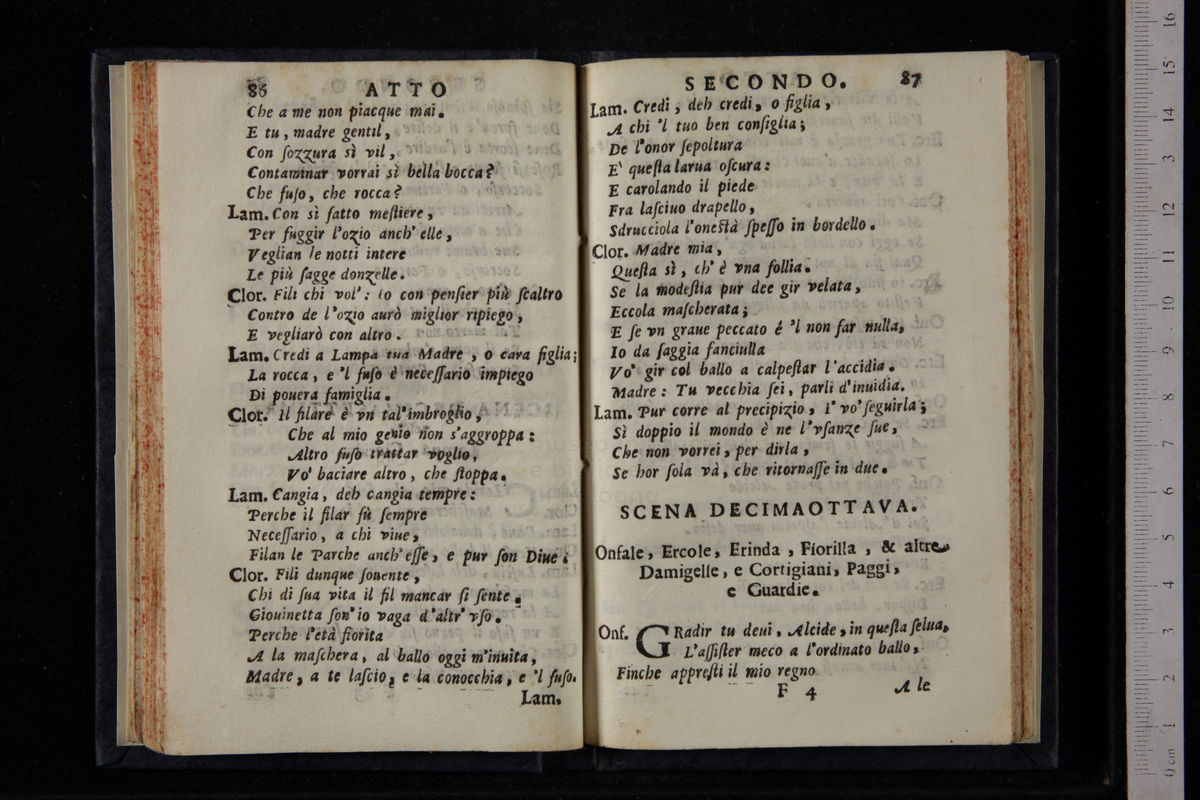 86 ATTO
Che a me non piacque mai.
E tu, madre gentil,
Con ſozzura sì vil,
Contaminar vorrai sì bella bocca?
Che fuſo, che rocca?
Lam. Con sì fatto meſtiere,
Per fuggir l'ozio anch' elle,
Veglian le notti intere
Le più ſagge donzelle.
Clor. Fili chi vol': io con penſier più ſcaltro
Contro de l'ozio aurò miglior ripiego,
E vegliarò con altro.
Lam. Credi a Lampa tua Madre, o cara figlia;
La rocca, e 'l fuſo è neceſſario impiego
Di pouera famiglia.
Clor. Il filare è vn tal' imbroglio,
Che al mio genio non s'aggroppa:
Altro fuſo trattar voglio,
Vo' baciare altro, che ſtoppa.
Lam. Cangia, deh cangia tempre:
Perche il filar fù ſempre
Neceſſario, a chi viue,
Filan le Parche anch' eſſe, e pur ſon Diue.
Clor. Fili dunque ſouente,
Chi di ſua vita il fil mancar ſi ſente.
Giouinetta ſon' io vaga d'altr' vſo.
Perche l'età fiorita
A la maſchera, al ballo oggi m'inuita,
Madre, a te laſcio, e la conocchia, e 'l fuſo.
Lam.
SECONDO. 87
Lam. Credi, deh credi, o figlia,
A chi 'l tuo ben conſiglia;
De l'onor ſepoltura
E' queſta larua oſcura:
E carolando il piede
Fra laſciuo drapello,
Sdrucciola l'oneſtà ſpeſſo in bordello.
Clor. Madre mia,
Queſta sì, ch' è vna follia.
Se la modeſtia pur dee gir velata,
Eccola maſcherata;
E ſe vn graue peccato é 'l non far nulla,
Io da ſaggia fanciulla
Vo' gir col ballo a calpeſtar l'accidia.
Madre: Tu vecchia ſei, parli d'inuidia.
Lam. Pur corre al precipizio, i' vo' ſeguirla;
Sì doppio il mondo è ne l'vſanze ſue,
Che non vorrei, per dirla,
Se hor ſola và, che ritornaſſe in due.
SCENA DECIMAOTTAVA.
Onfale, Ercole, Erinda, Fiorilla, & altre
Damigelle, e Cortigiani, Paggi,
e Guardie.
Onf. GRadir tu deui, Alcide, in queſta ſelua,
L'aſſiſter meco a l'ordinato ballo,
Finche appreſti il mio regno
F 4 A le